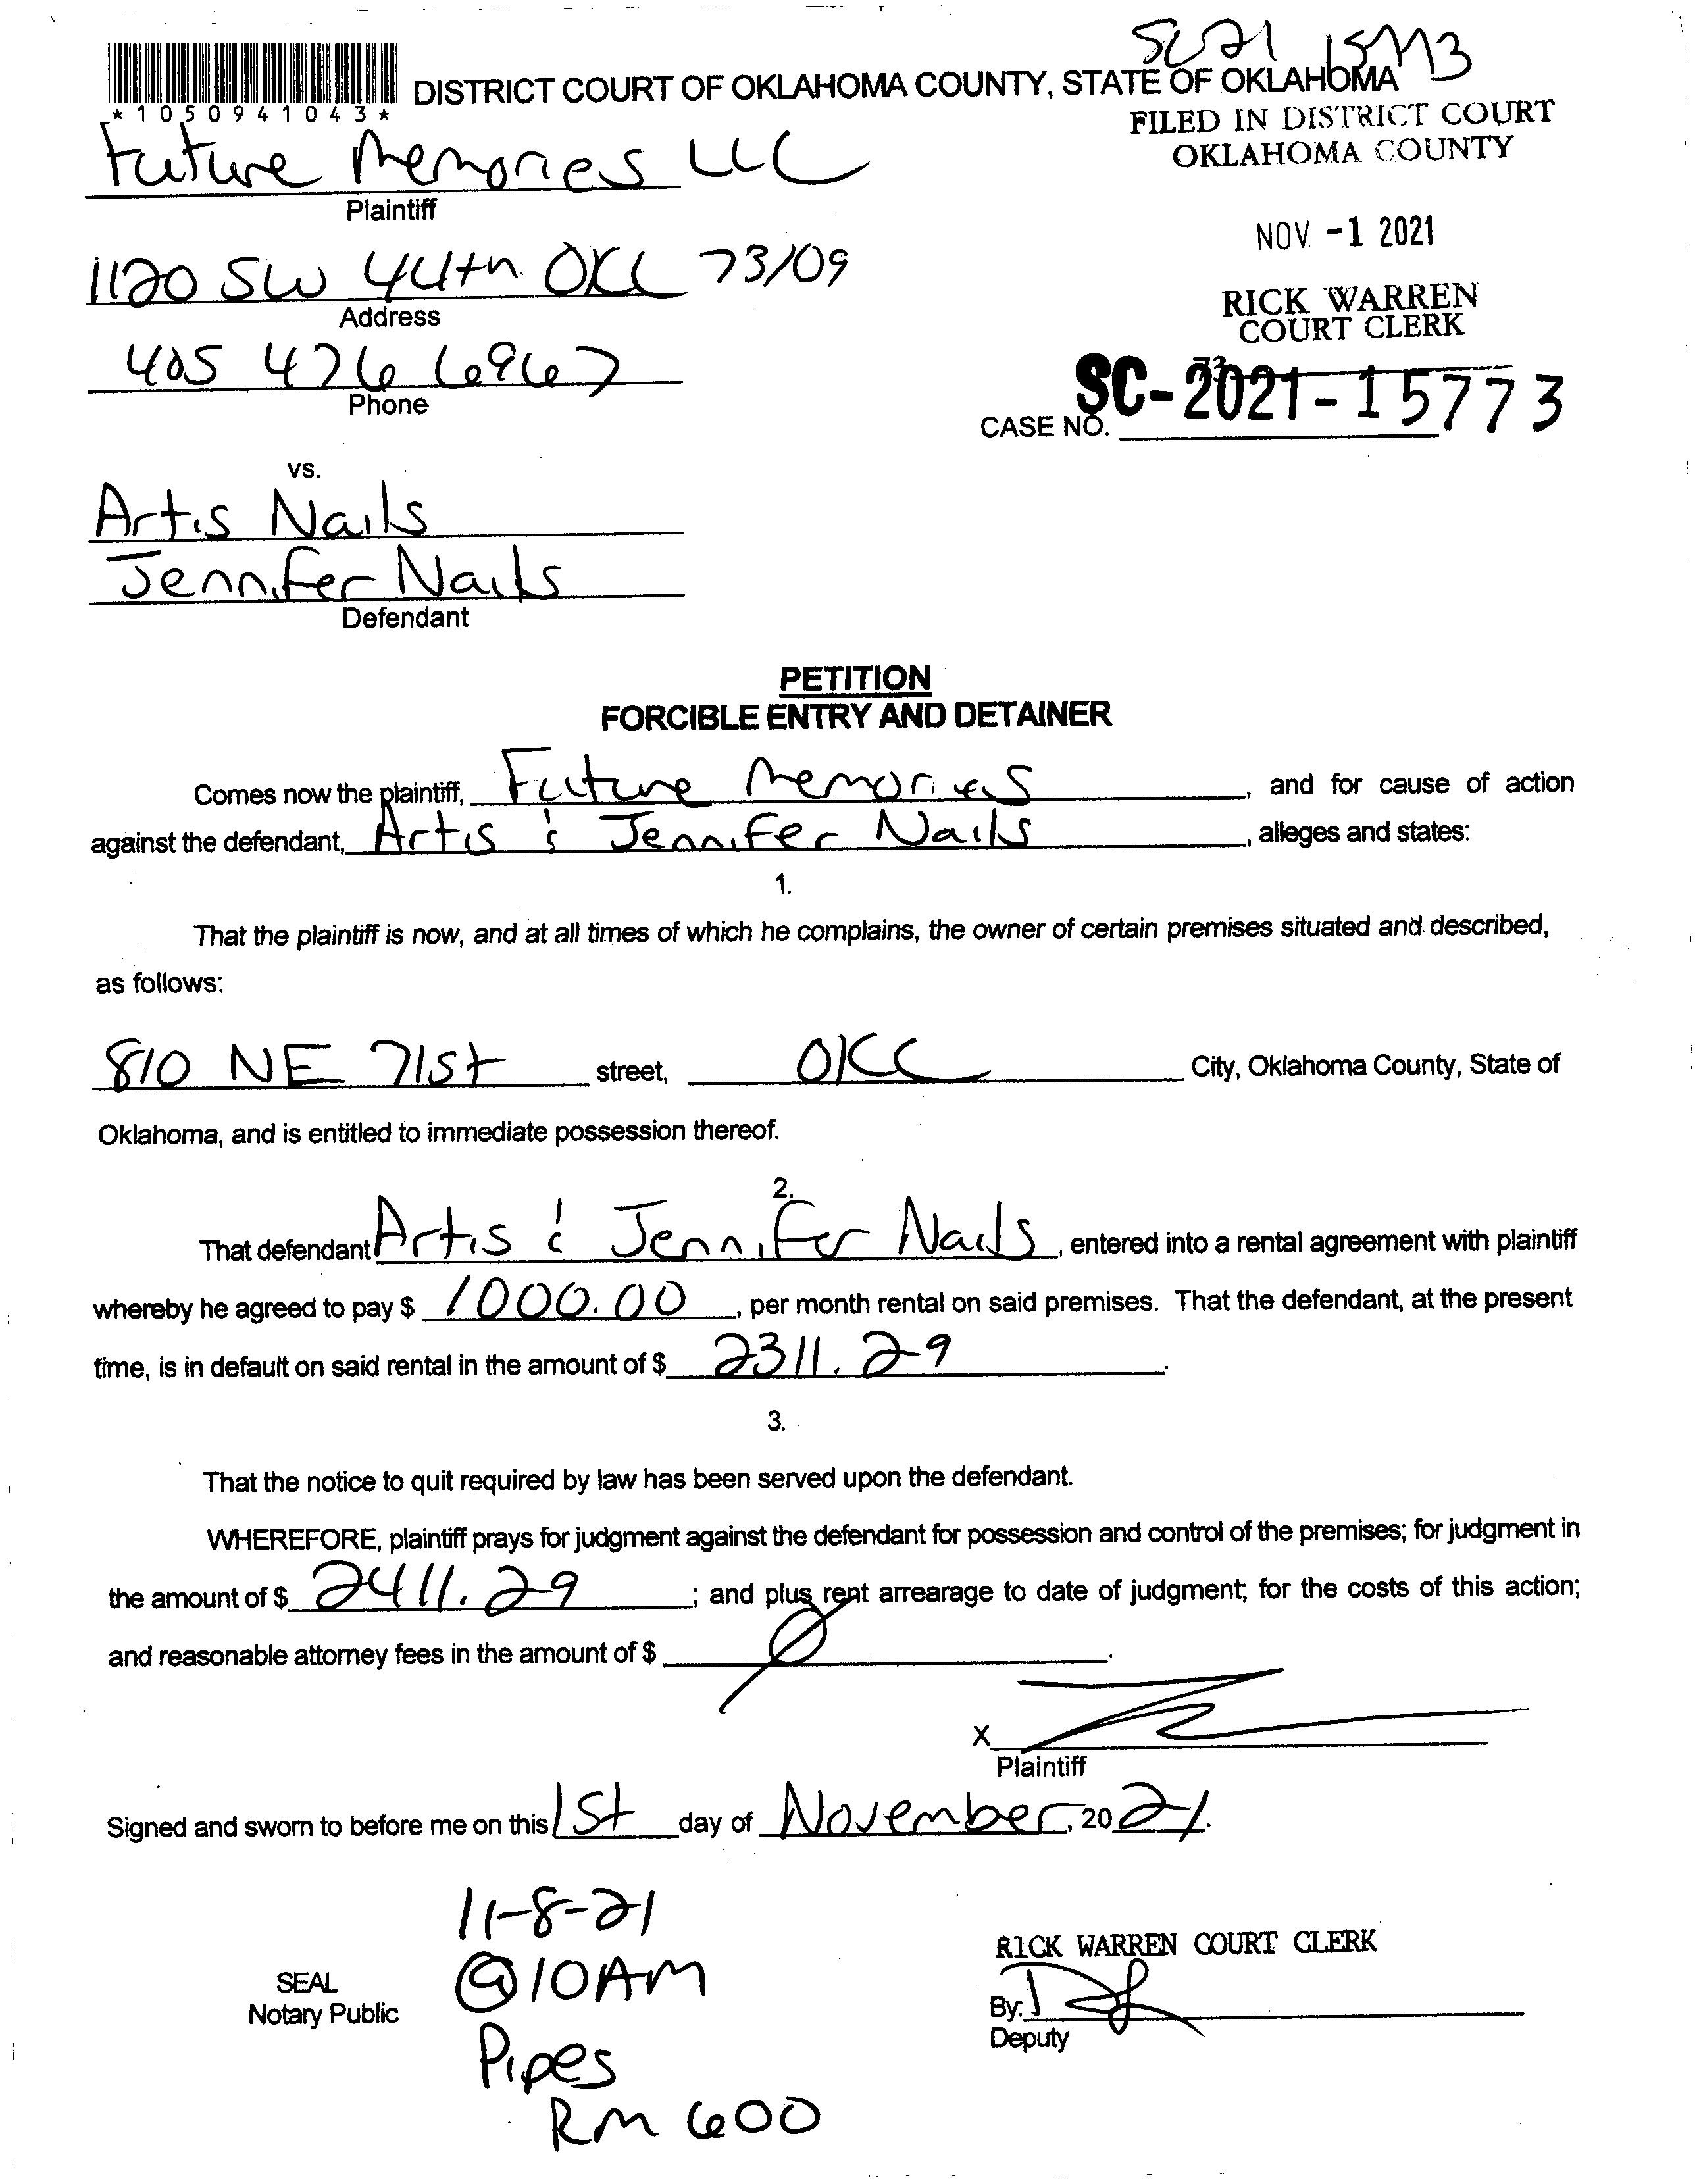 SC21 15773
DISTRICT COURT OF OKLAHOMA COUNTY, STATE OF OKLAHOMA
*1050941043*
FILED IN DISTRICT COURT
OKLAHOMA COUNTY
Future Memories LLC
Plaintiff
NOV -1 2021
1120 SW 44th OKC 73109
Address
RICK WARREN
COURT CLERK
405 476 6967
Phone
73
CASE NO. SC-2021-15773
vs.
Artis Nails
Jennifer Nails
Defendant
PETITION
FORCIBLE ENTRY AND DETAINER
Comes now the plaintiff, Future Memories, and for cause of action
against the defendant, Artis & Jennifer Nails, alleges and states:
1.
That the plaintiff is now, and at all times of which he complains, the owner of certain premises situated and described,
as follows:
810 NE 71st street, OKC City, Oklahoma County, State of
Oklahoma, and is entitled to immediate possession thereof.
2.
That defendant Artis & Jennifer Nails, entered into a rental agreement with plaintiff
whereby he agreed to pay $ 1000.00, per month rental on said premises. That the defendant, at the present
time, is in default on said rental in the amount of $ 2311.29.
3.
That the notice to quit required by law has been served upon the defendant.
WHEREFORE, plaintiff prays for judgment against the defendant for possession and control of the premises; for judgment in
the amount of $ 2411.29; and plus rent arrearage to date of judgment; for the costs of this action;
and reasonable attorney fees in the amount of $ Ø.
X
Plaintiff
Signed and sworn to before me on this 1st day of November, 2021.
11-8-21
@10AM
Pipes
RM 600
SEAL
Notary Public
RICK WARREN COURT CLERK
By:
Deputy